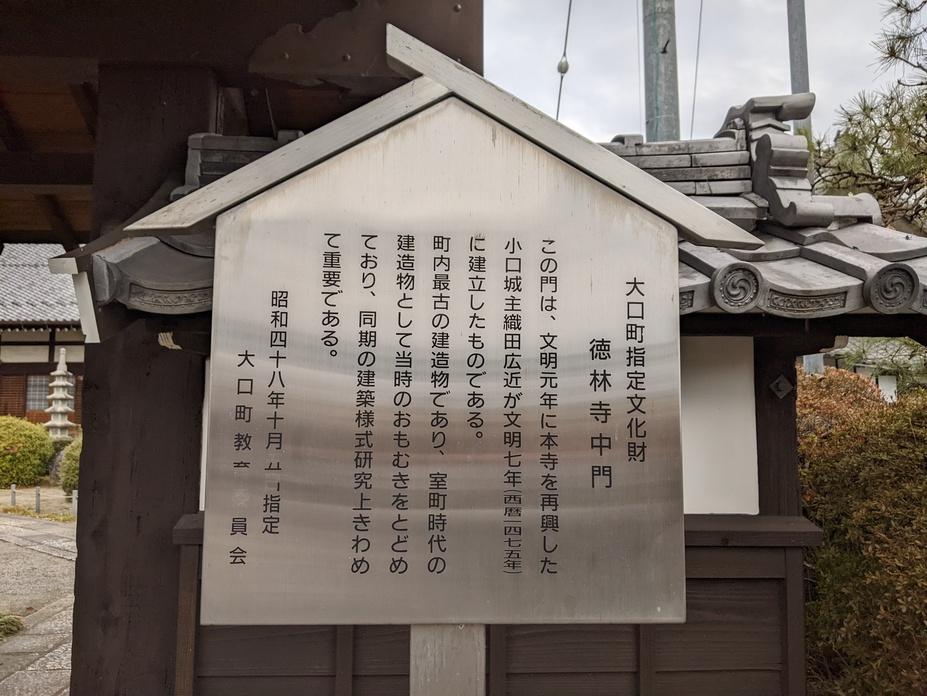 大口町指定文化財
徳林寺中門
この門は、文明元年に本寺を再興した
小口城主織田広近が文明七年(西暦一四七五年)
に建立したものである。
町内最古の建造物であり、室町時代の
建造物として当時のおもむきをとどめ
ており、同期の建築様式研究上きわめ
て重要である。
昭和四十八年十月 指定
大口町教 員会